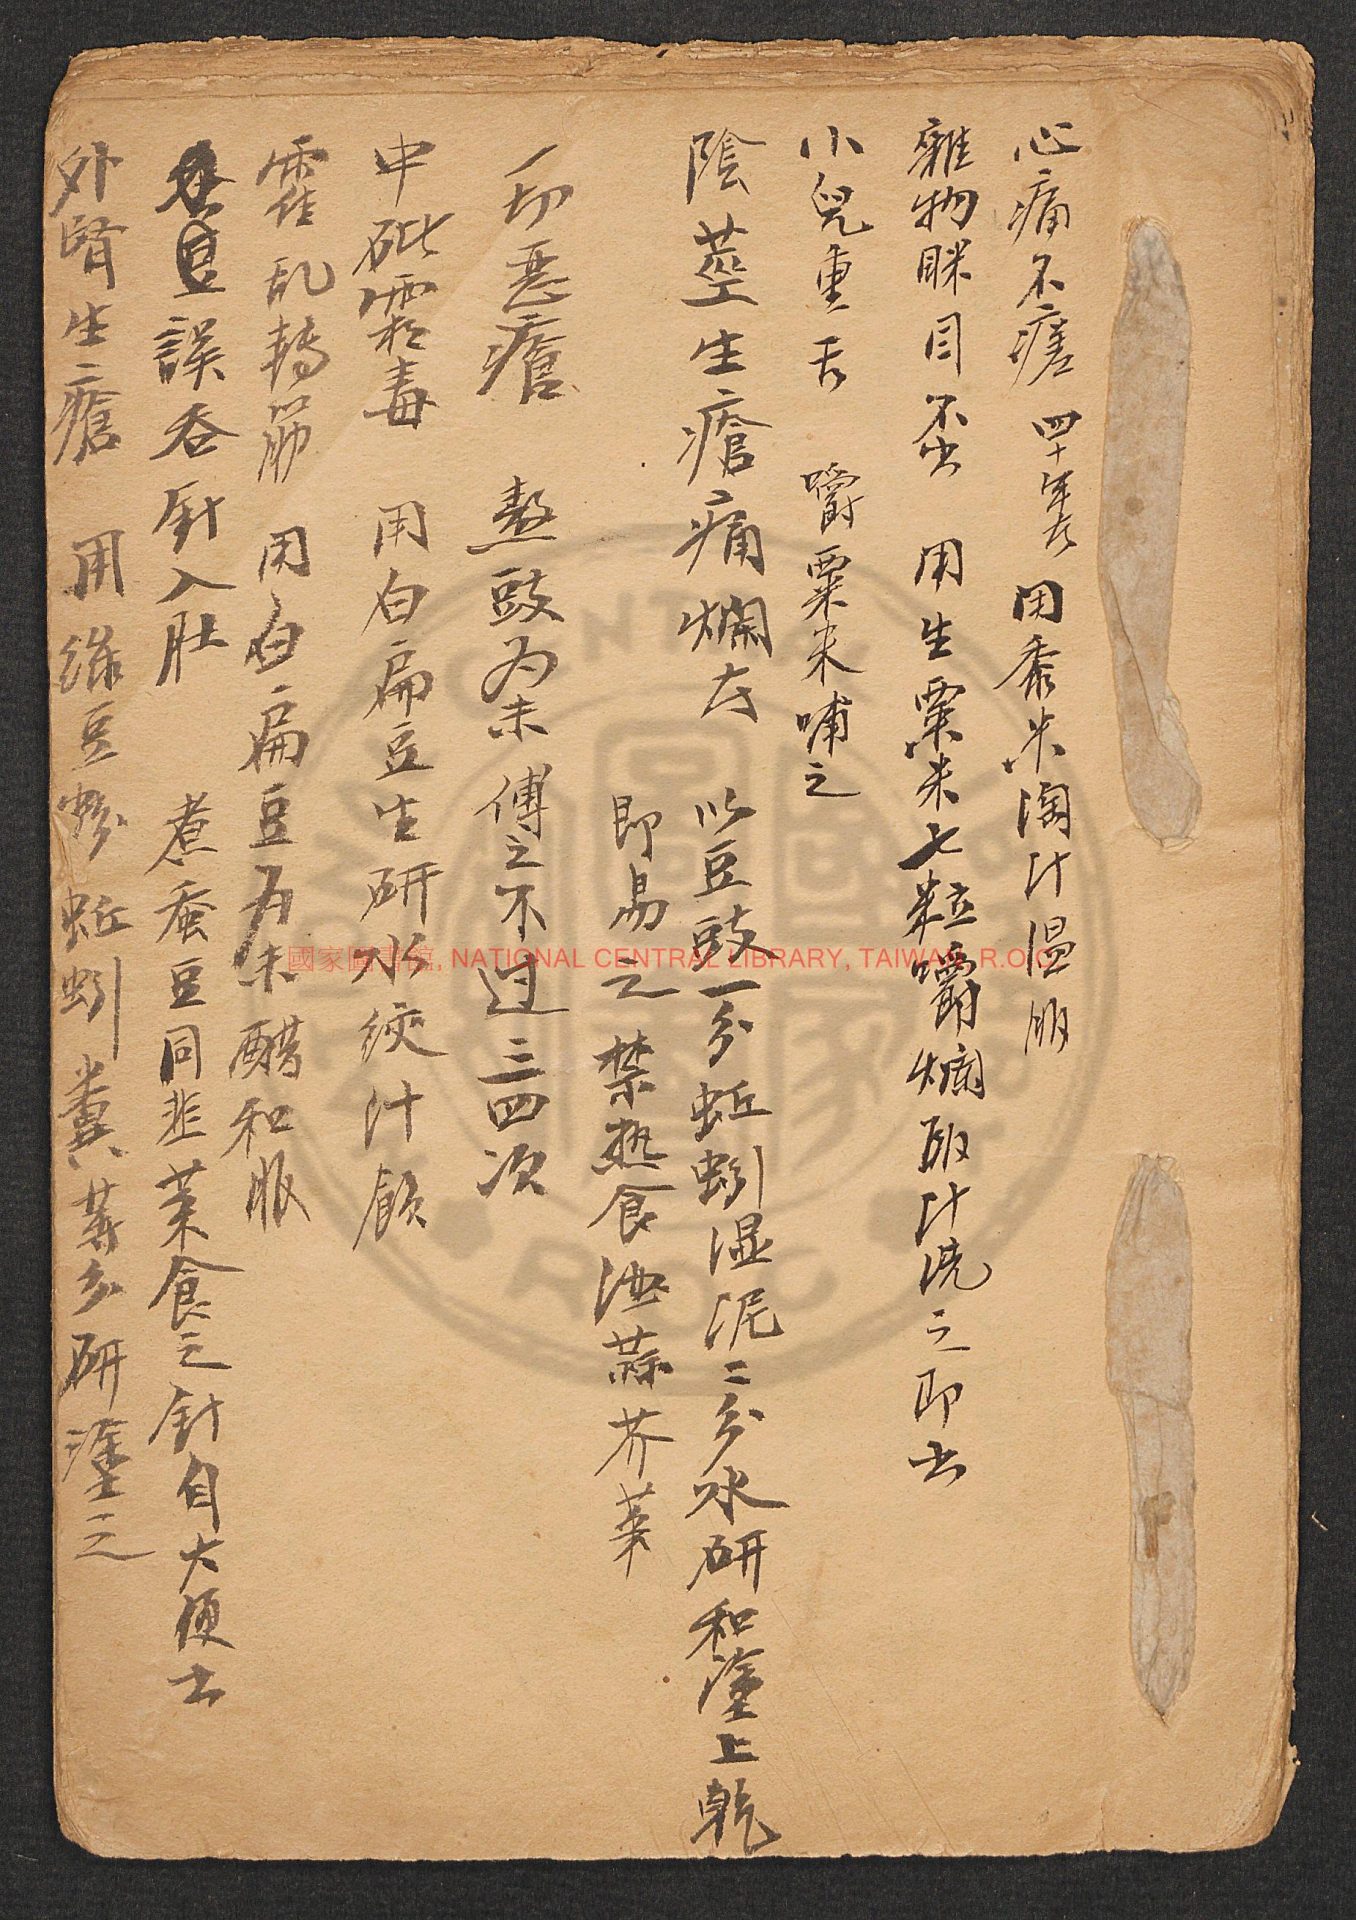 心痛不瘥 四十年者 用黍米淘汁温服
雜物眯目不出 用生粟米七粒嚼爛取汁洗之即出
小兒重舌 嚼粟米哺之
陰莖生瘡痛爛者 以豆豉一分蚯蚓湿泥二分水研和塗上乾
即易之禁热食酒蒜芥菜
一切恶瘡 熬豉为末傅之不过三四次
中砒霜毒 用白扁豆生研水绞汁飲
霍乱轉筋 用白扁豆为末醋和服
豆誤吞針入肚 煮蚕豆同韭菜食之針自大便出
外腎生瘡 用绿豆粉蚯蚓糞等分研塗之
國家圖書館, NATIONAL CENTRAL LIBRARY, TAIWAN, R.O.C